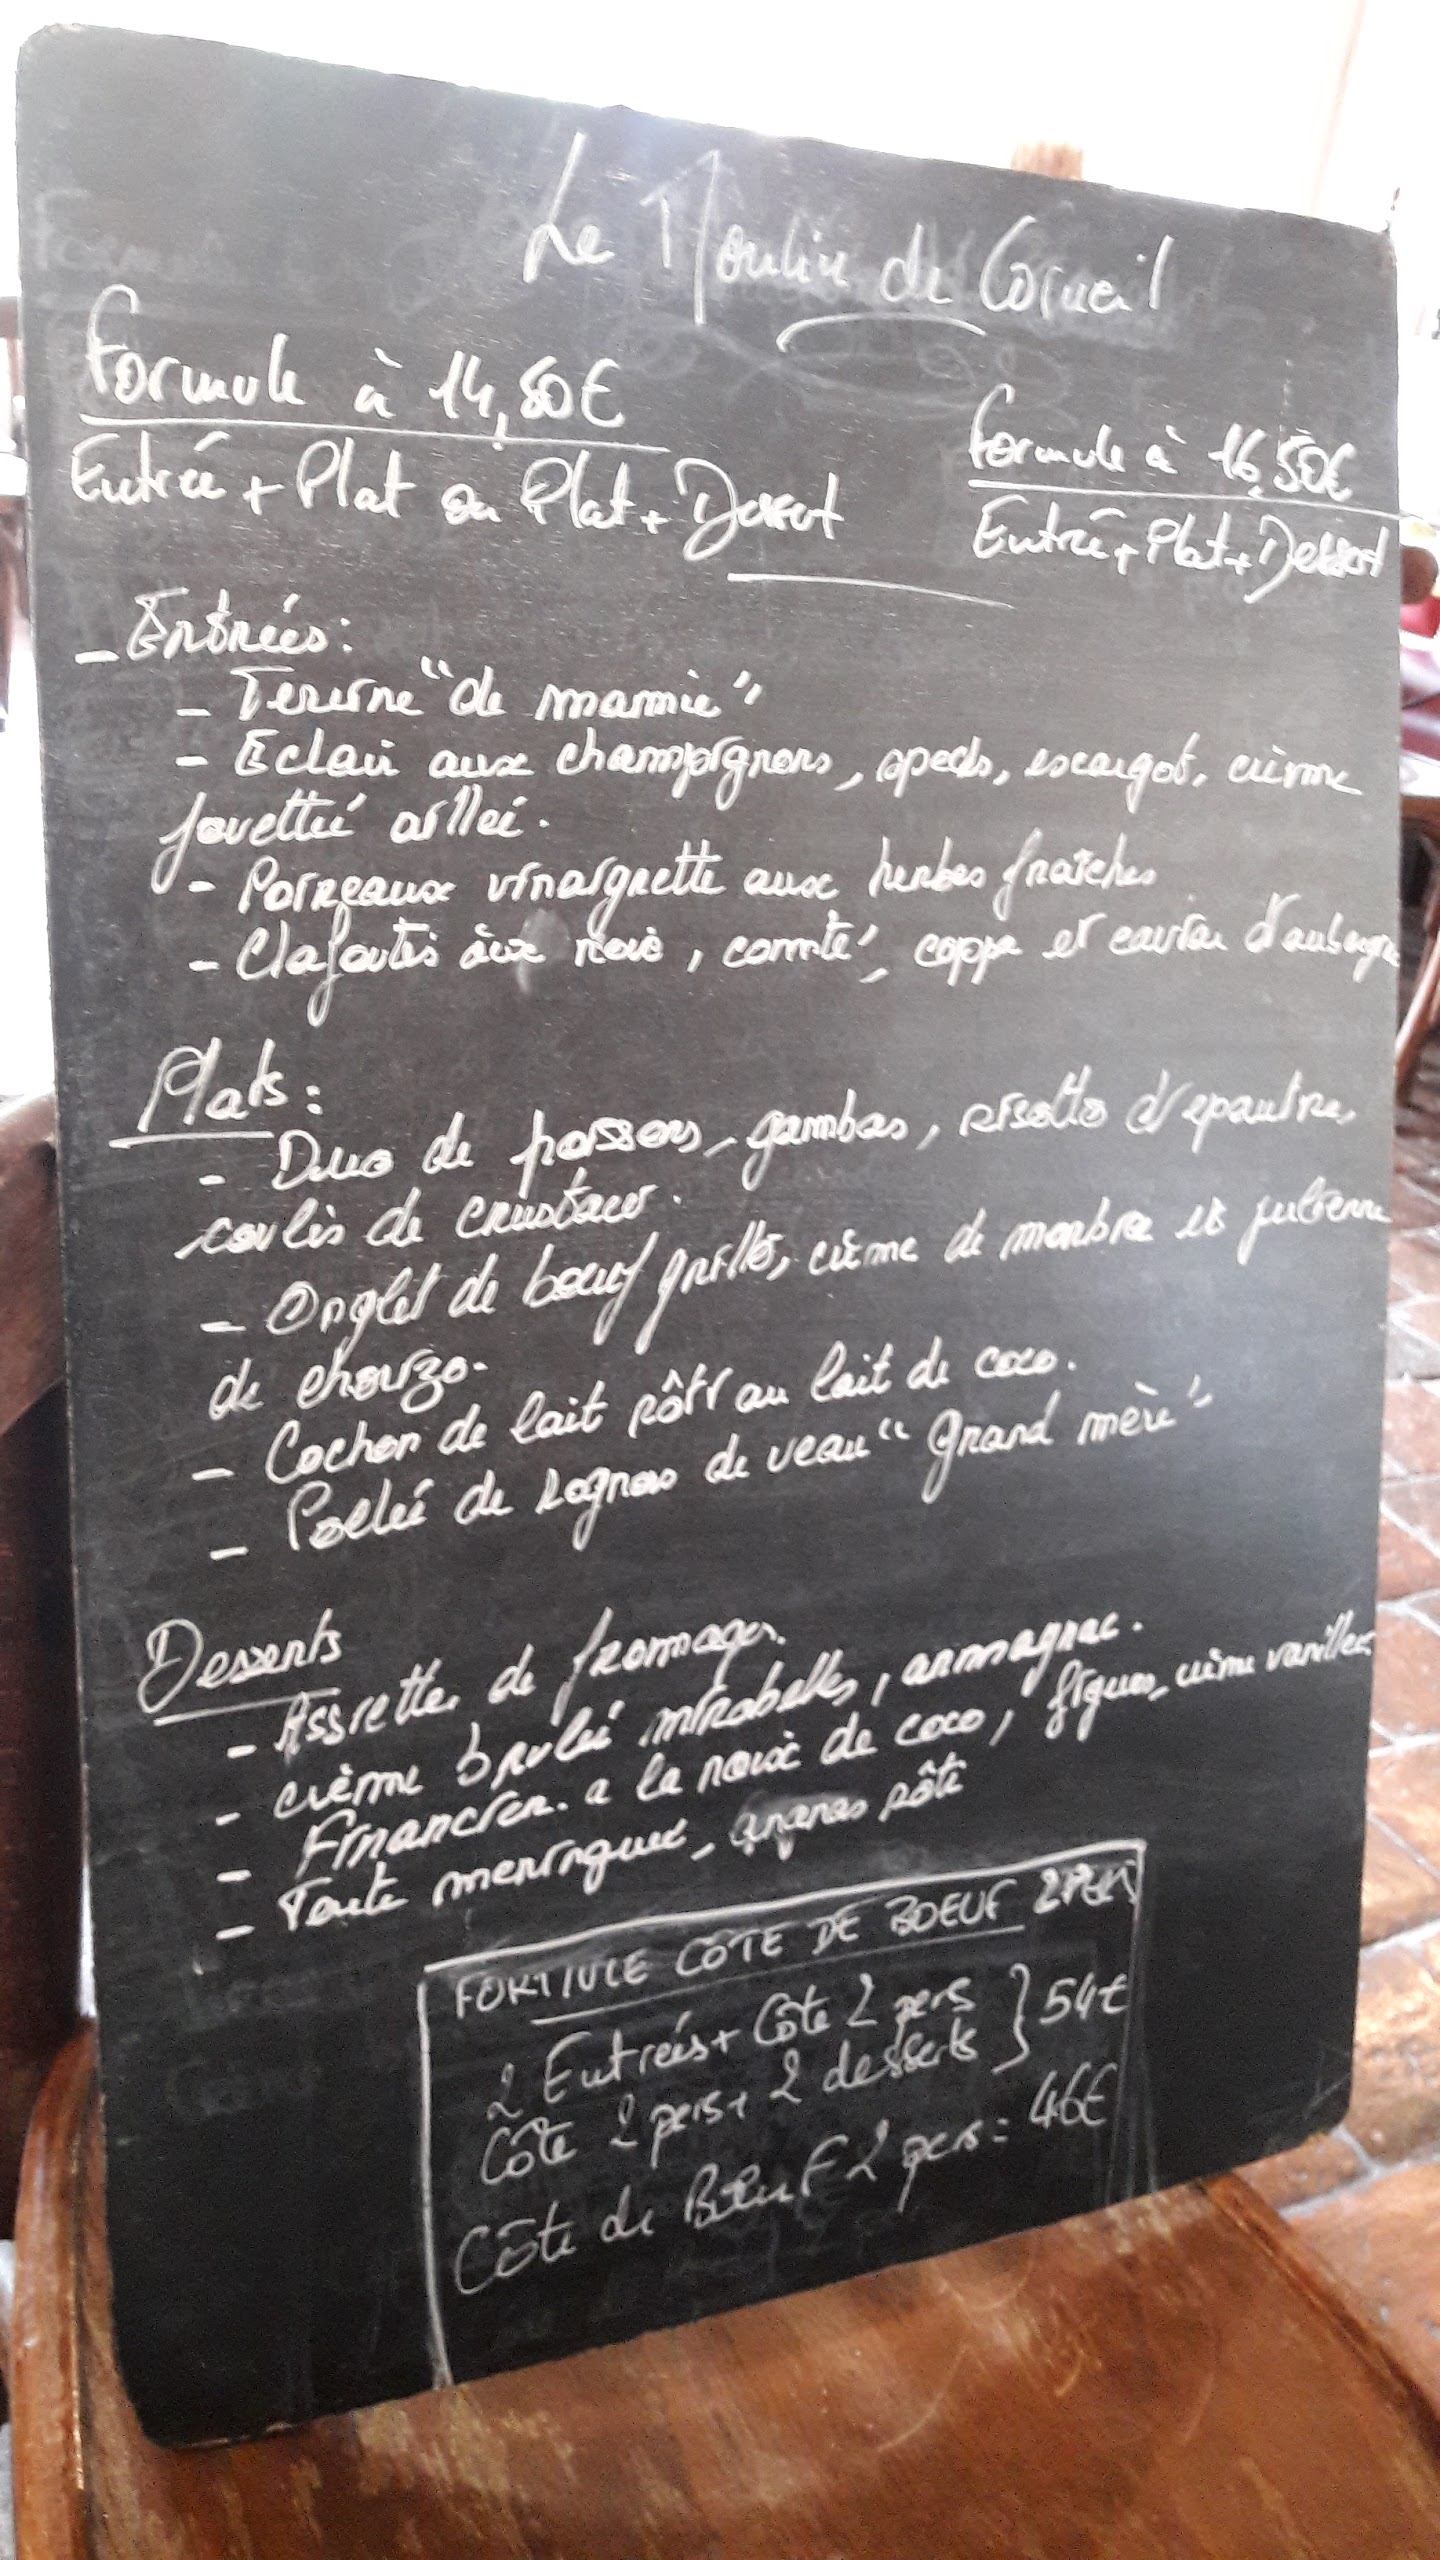 Le Moulin de Corneil
Formule à 14,50€
Formule à 16,50€
Entrée + Plat ou Plat + Dessert
Entrée + Plat + Dessert
- Entrées:
- Terrine "de mamie"
- Eclair aux champignons, specks, escargot, crème
fouettée aillée.
- Poireaux vinaigrette aux herbes fraîches
- Clafoutis aux noix, comté, coppa et caviar d'aubergine
Plats:
- Duo de poissons, gambas, risotto d'epautre,
coulis de crustacés.
- Onglet de boeuf grillé, crème de et julienne
de chorizo.
- Cochon de lait rôti au lait de coco.
- Poêlée de rognons de veau "Grand mère"
Desserts
- Assiette de fromages.
- crème brulée mirabelles, armagnac.
- Financier à la noix de coco, figues, crème vanillée
- Tarte meringuée, ananas rôti
FORMULE CÔTE DE BOEUF 2 PERS
2 Entrées + Côte 2 pers
Côte 2 pers + 2 desserts } 54€
Côte de Boeuf 2 pers = 46€